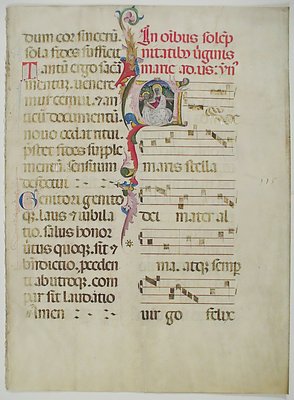 dum cor sincerum
sola fides sufficit
Tantū ergo sacra
mentum. venere
mur cernui. et an
ticum documentū
novo cedat ritui.
prestet fides supple
mentū. sensuum
defectui.
Genitori genito
q. laus et iubila
tio. salus honor
virtus quoq. sit et
bñdictio. proceden
ti ab utroq. com
par sit laudatio
Amen
In oībus solēp
nitatibȝ ṽginis
marie ad. us: ym
maris stella
dei mater al
ma. atq. semp
uir go felix